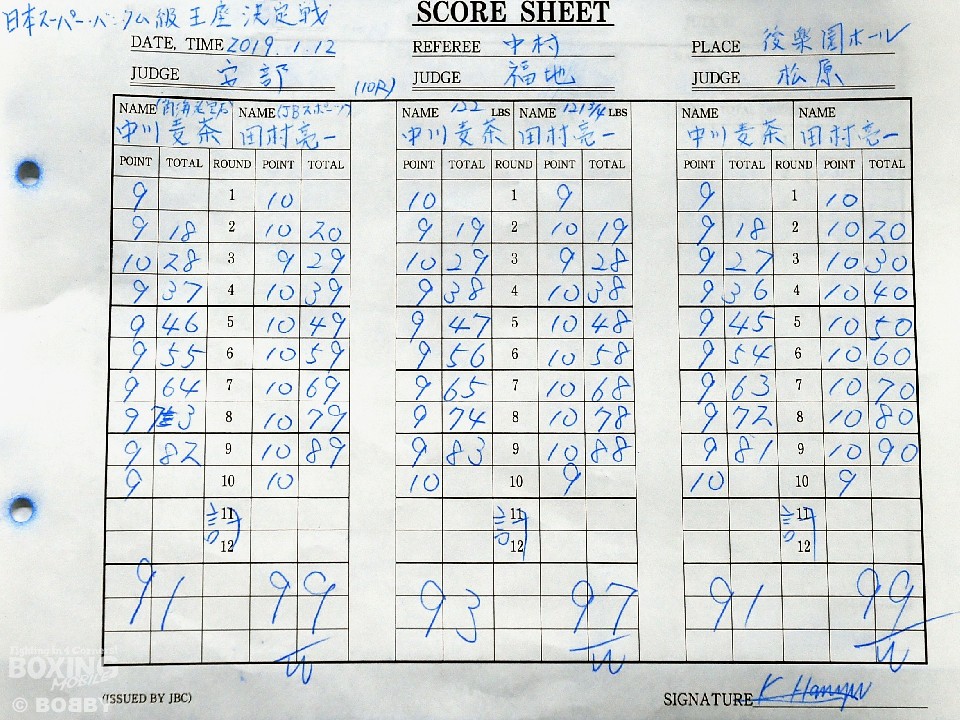 SCORE SHEET
日本スーパー・バンタム級王座決定戦
DATE, TIME 2019.1.12 REFEREE 中村 PLACE 後楽園ホール
JUDGE 安部 (10R) JUDGE 福地 JUDGE 松原
NAME (角海老宝石) NAME (JBスポーツ) NAME 122 LBS NAME 121 3/4 LBS NAME NAME
中川麦茶 田村亮一 中川麦茶 田村亮一 中川麦茶 田村亮一
POINT TOTAL ROUND POINT TOTAL POINT TOTAL ROUND POINT TOTAL POINT TOTAL ROUND POINT TOTAL
9 1 10 10 1 9 9 1 10
9 18 2 10 20 9 19 2 10 19 9 18 2 10 20
10 28 3 9 29 10 29 3 9 28 9 27 3 10 30
9 37 4 10 39 9 38 4 10 38 9 36 4 10 40
9 46 5 10 49 9 47 5 10 48 9 45 5 10 50
9 55 6 10 59 9 56 6 10 58 9 54 6 10 60
9 64 7 10 69 9 65 7 10 68 9 63 7 10 70
9 73 8 10 79 9 74 8 10 78 9 72 8 10 80
9 82 9 10 89 9 83 9 10 88 9 81 9 10 90
9 10 10 10 10 9 10 10 9
11 11 11
計 計 計
12 12 12
91 99 93 97 91 99
W W W
Fighting in 4 Corners!
BOXING
MOBILE
© BOBBY
(ISSUED BY JBC) SIGNATURE